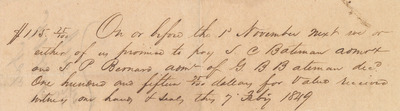 $115.00. On or before the 1st November next we or
either of us promise to pay S C Bateman admx
and S P Bernard admr of G B Bateman decd
One hundred and fifteen dollars for value received
witness our hands & seals this 7 Feby 1849